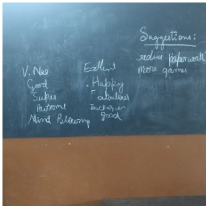 Suggestions:
reduce paperwork
more games
V. Nice
Good
Super
Awesome
Mind Blowing
Excellent
Happy
Fabulous
good